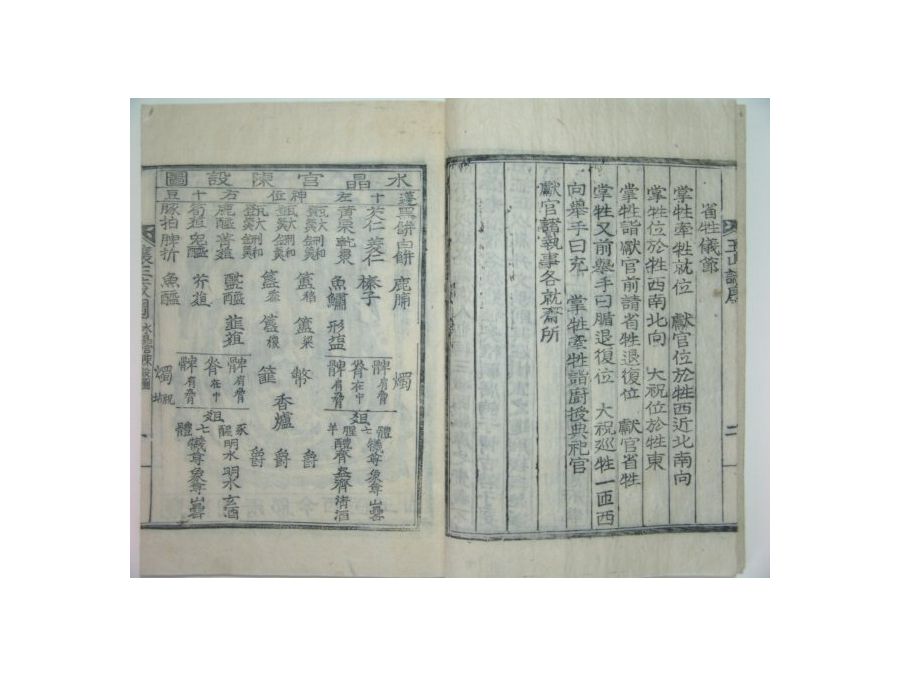 省牲儀節
掌牲牽牲就位 獻官位於牲西近北南向
掌牲位於牲西南北向 大祝位於牲東
掌牲詣獻官前請省牲退復位 獻官省牲
掌牲又前舉手曰腯退復位 大祝巡牲一匝西
向舉手曰充 掌牲牽牲詣廚授典祀官
獻官諸執事各就齋所
水晶宮陳設圖
籩十左神位右十豆
黑餅 白餅 鹿脯 燭
芡仁 菱仁 榛子
黃栗 乾棗 魚鱐 形塩
簠稻 簠梁 幣
簋黍 簋稷 篚
香爐
爵 爵 爵
鹿醢 菁菹 醓醢 韮菹
筍菹 兔醢 芹菹
豚拍 脾折 魚醢
燭
俎
羊腥七體
醴齊 盎齊 清酒
犧尊 象尊 山罍
俎
豕腥七體
明水 明水 玄酒
犧尊 象尊 山罍
祝坫